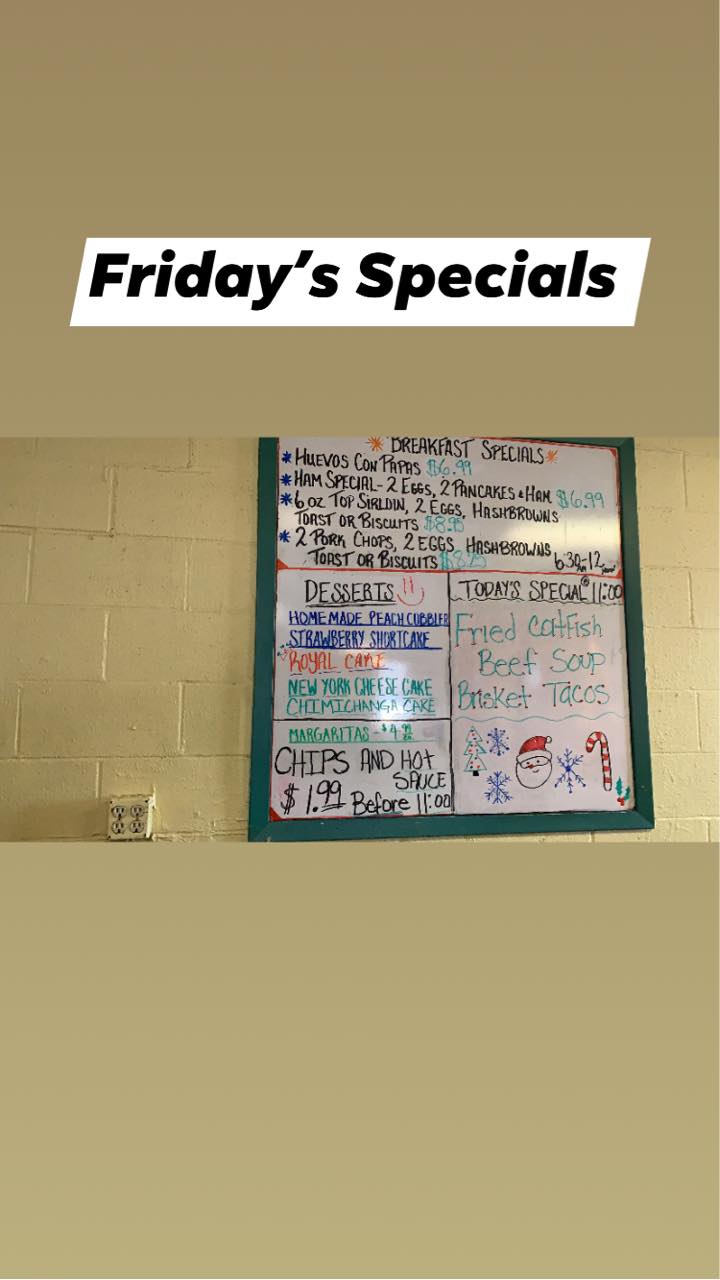 Friday's Specials
BREAKFAST SPECIALS
* HUEVOS CON PAPAS $6.99
* HAM SPECIAL - 2 EGGS, 2 PANCAKES & HAM $6.99
* 6 OZ TOP SIRLOIN, 2 EGGS, HASHBROWNS
TOAST OR BISCUITS $8.95
* 2 PORK CHOPS, 2 EGGS, HASHBROWNS
TOAST OR BISCUITS
6:30AM-12
DESSERTS
HOMEMADE PEACH COBBLER
STRAWBERRY SHORTCAKE
ROYAL CAKE
NEW YORK CHEESE CAKE
CHIMICHANGA CAKE
MARGARITAS - $4.99
CHIPS AND HOT
SAUCE
$1.99 Before 11:00
TODAY'S SPECIAL @ 11:00
Fried Catfish
Beef Soup
Brisket Tacos